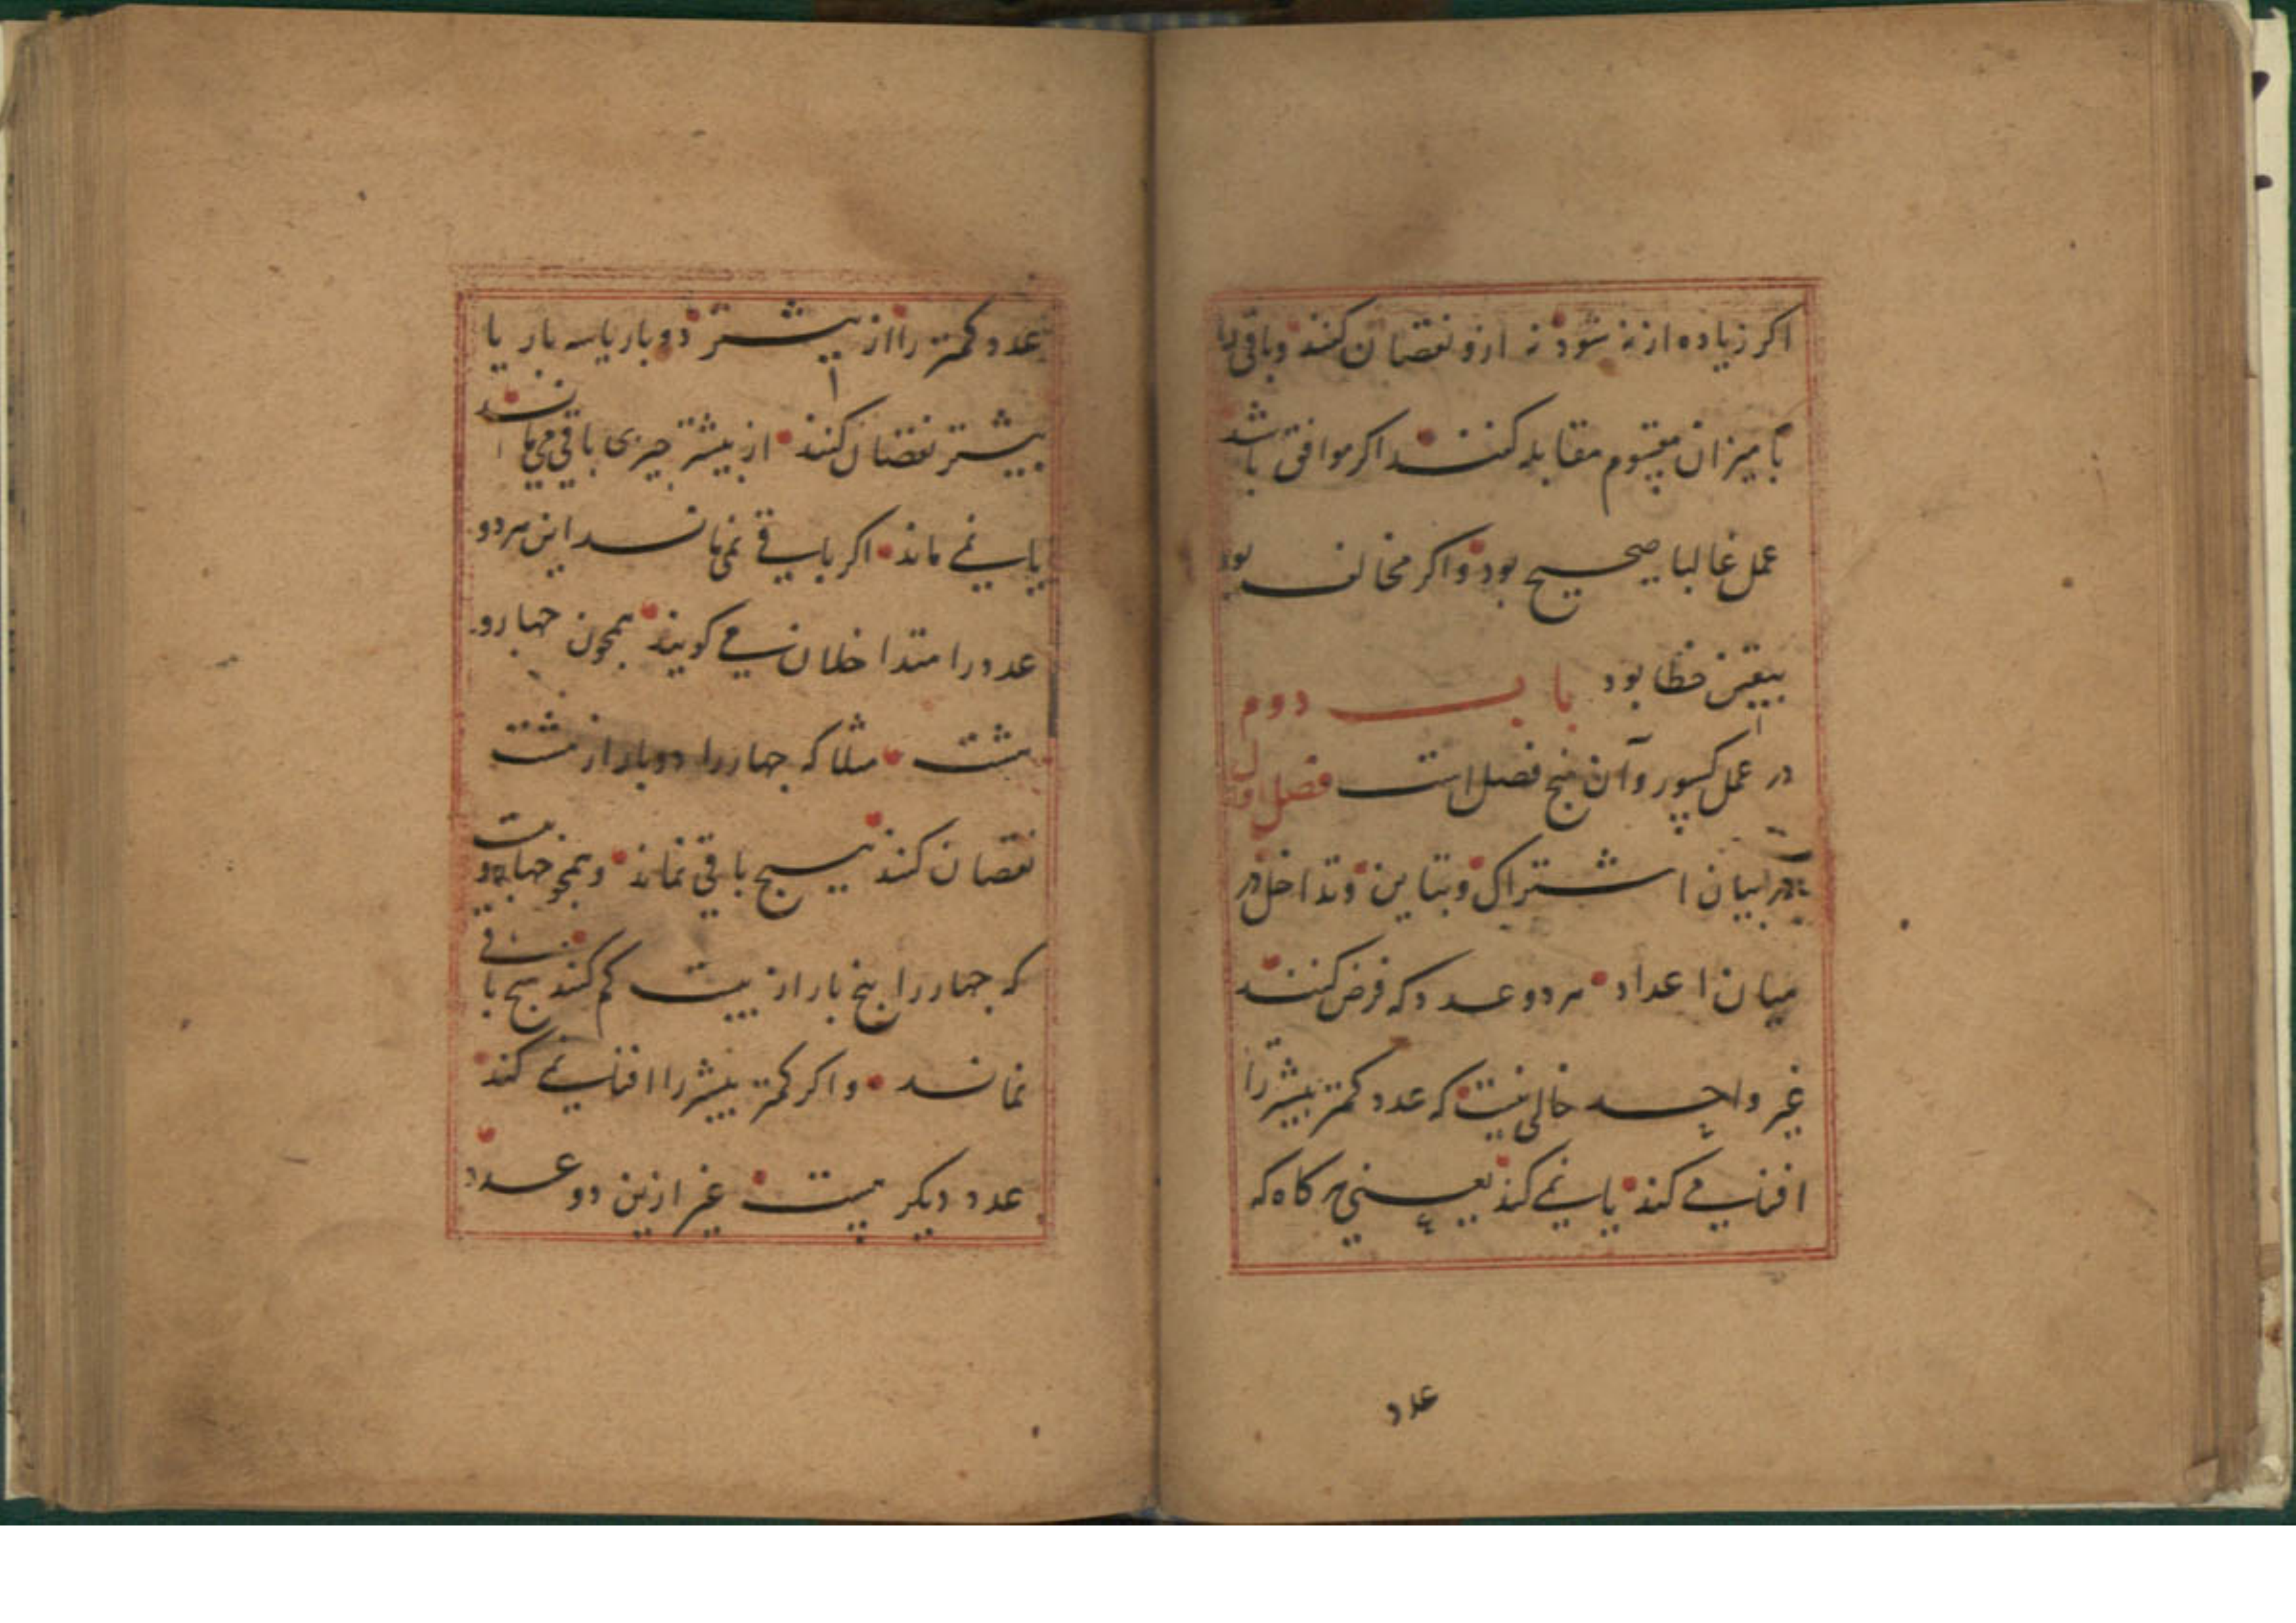 اکر زیاده از نه شود نه ازو نقصان کنند و باقی را
با میزان مقسوم مقابله کنند اکر موافق باشد
عمل غالبا صحیح بود و اکر مخالف بود
بیقین خطا بود باب دوم
در عمل کسور و آن پنج فصل است فصل اول
در بیان اشتراک و تباین و تداخل در
میان اعداد هر دو عدد که فرض کنند
غیر واحد خالی نیست که عدد کمتر بیشتر را
افنا می کند یا نمی کند یعنی هر کاه که
عدد
عدد کمتر را از بیشتر دو بار یا سه بار یا
بیشتر نقصان کنند از بیشتر چیزی باقی می ماند
یا نمی ماند اکر باقی نمی ماند این هر دو
عدد را متداخلان می کویند همچون چهار و
هشت مثلا که چهار را دو بار از هشت
نقصان کنند هیچ باقی نماند و همچو چهار و بیست
که چهار را پنج بار از بیست کم کنند هیچ باقی
نماند و اکر کمتر بیشتر را افنا نمی کند
عدد دیکر هست غیر ازین دو عدد